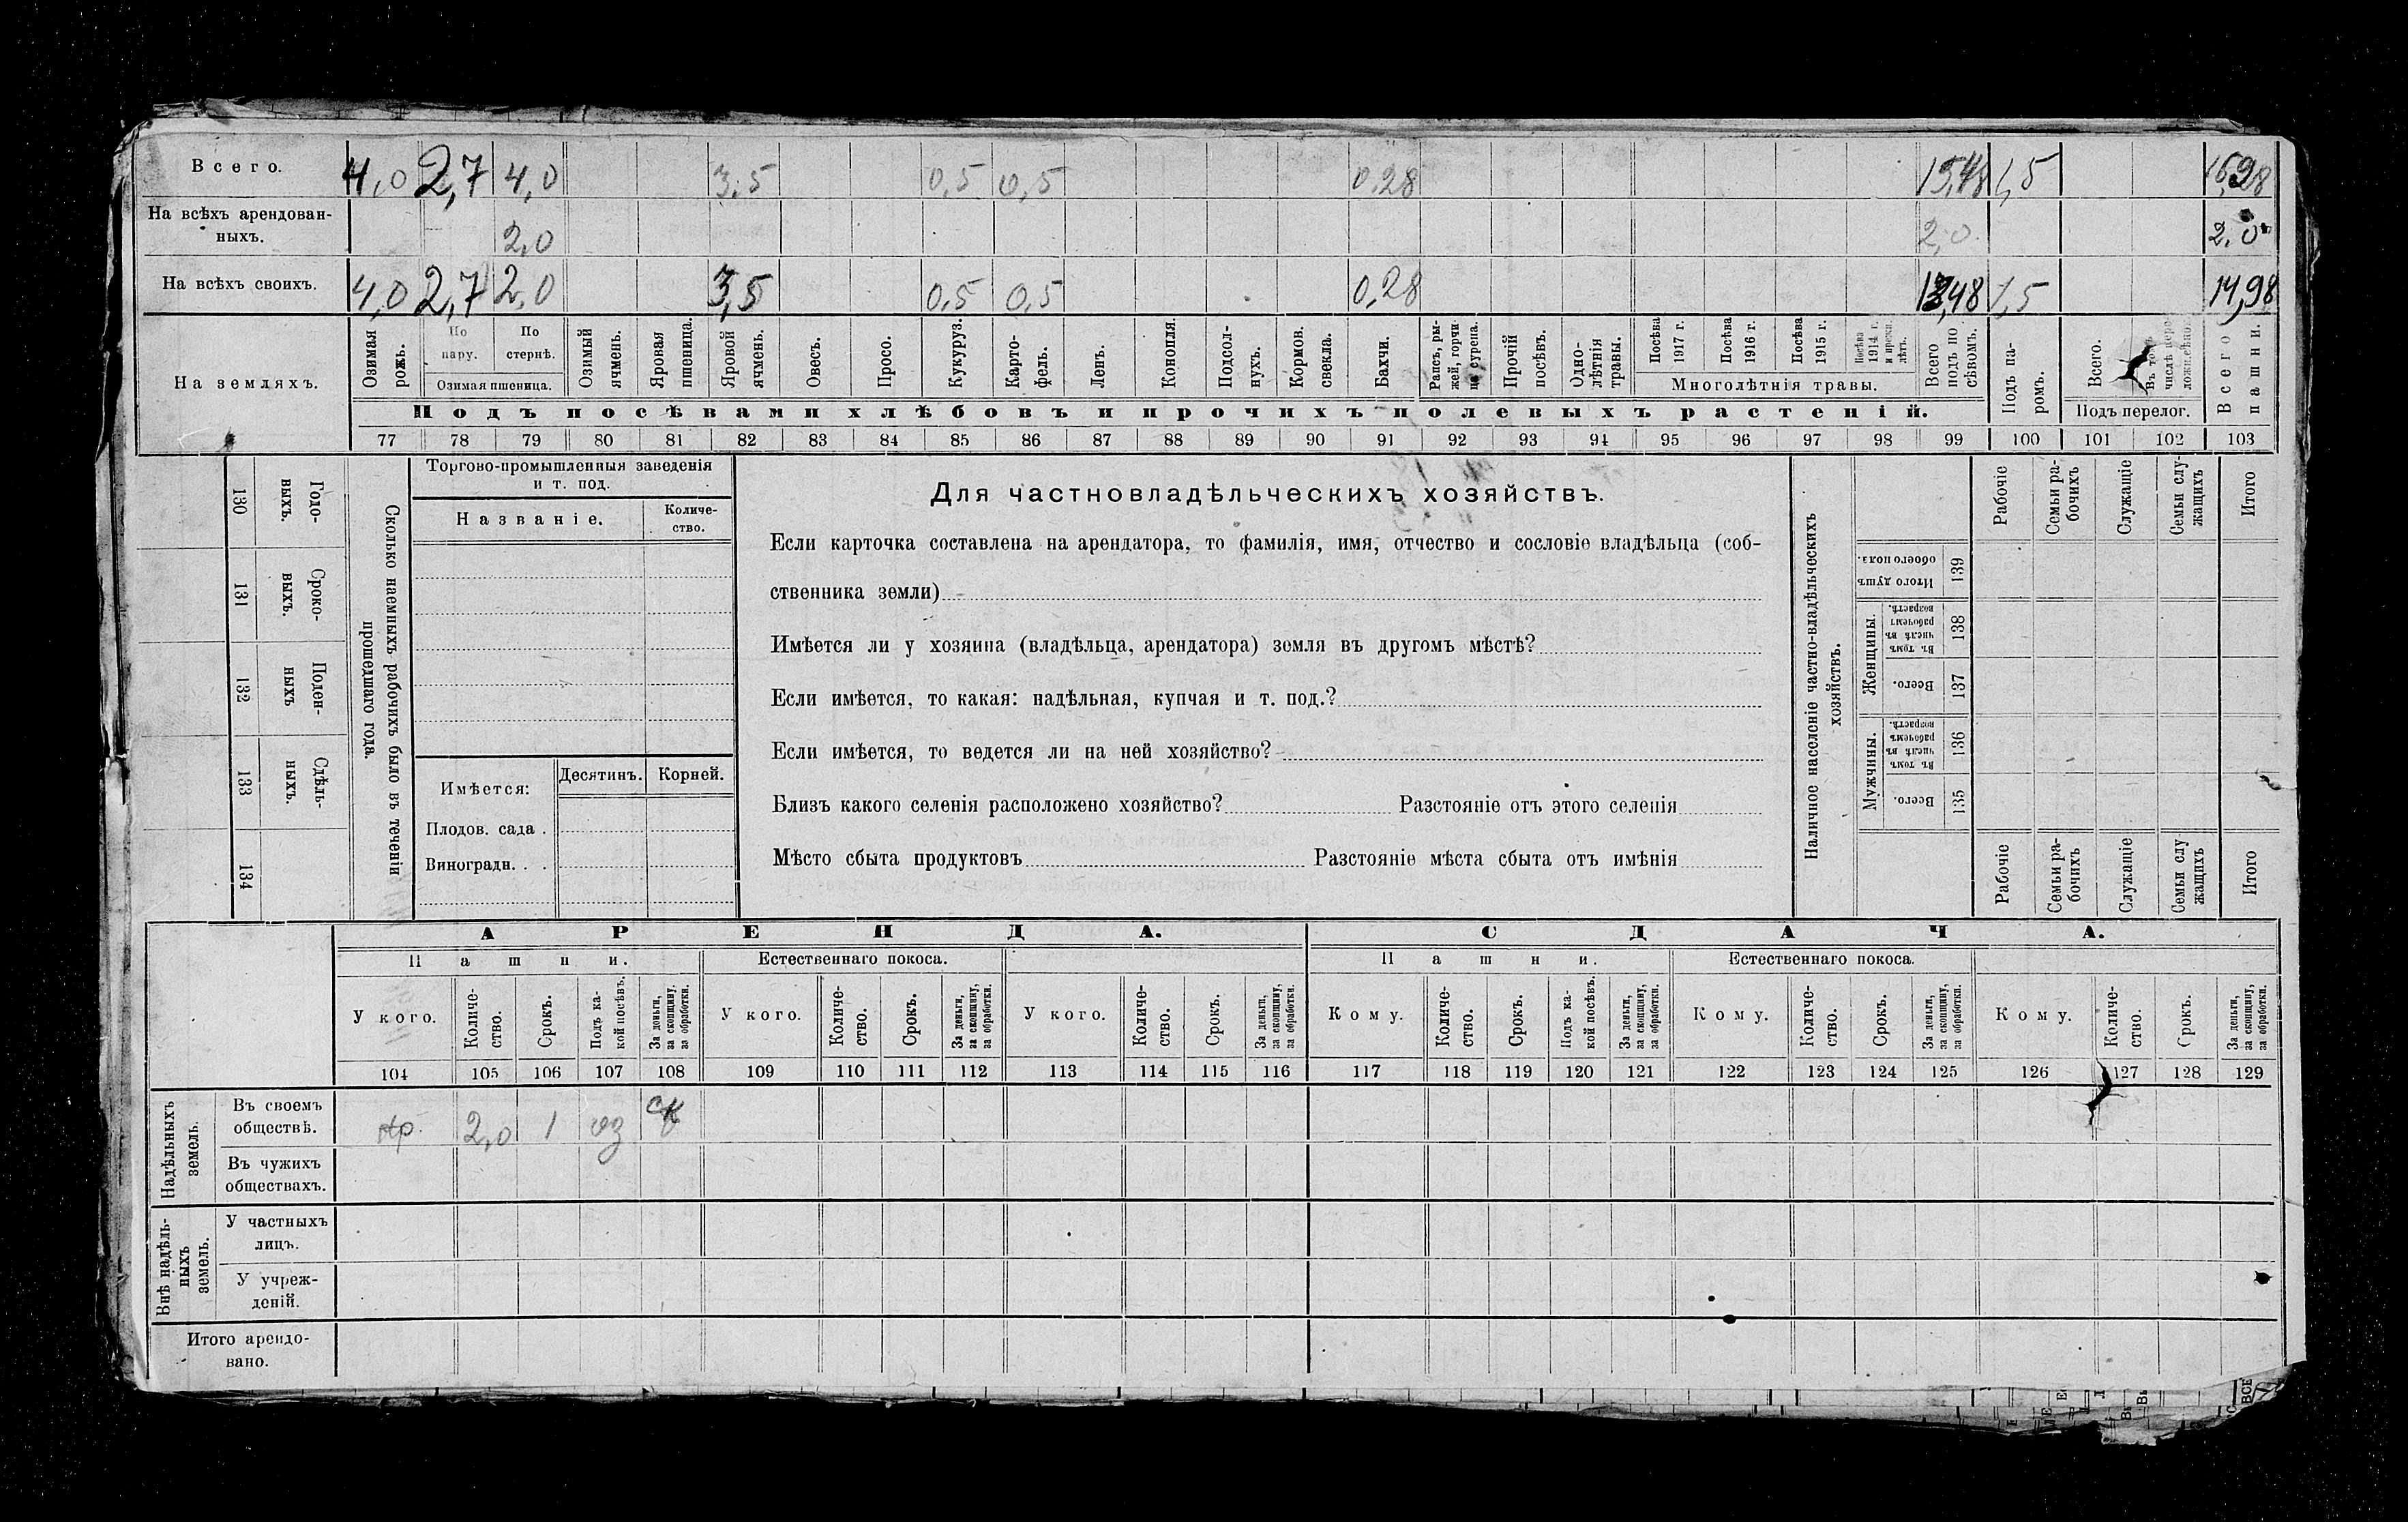 Всего. 4,0 2,7 4,0 3,5 0,5 0,5 0,28 15,48 1,5
На всѣхъ арендован-
ныхъ. 2,0 2,0 2,0
На всѣхъ своихъ. 4,0 2,7 2,0 3,5 0,5 0,5 0,28 13,48 1,5 14,98
На земляхъ.
Озимая рожь.
По пару.
По стернѣ.
Озимая пшеница.
Озимый ячмень.
Яровая пшеница.
Яровой ячмень.
Овесъ.
Просо.
Кукуруз.
Карто-
фель.
Ленъ.
Конопля.
Подсол-
нухъ.
Кормов. свекла.
Бахчи.
Рапсъ, ры-
жей, горчи-
ца сурепа.
Прочій посѣвъ.
Одно-
лѣтнія травы.
Посѣва 1917 г.
Посѣва 1916 г.
Посѣва 1915 г.
Посѣва 1914 г. и прежн. лѣтъ.
Многолѣтнія травы.
Всего подъ по-
сѣвомъ.
Подъ па-
ромъ.
Всего.
Въ томъ числѣ
Подъ перелог.
Всего пашни.
Подъ посѣвами хлѣбовъ и прочихъ полевыхъ растеній.
77 78 79 80 81 82 83 84 85 86 87 88 89 90 91 92 93 94 95 96 97 98 99 100 101 102 103
130 Годо-
выхъ.
131 Сроко-
выхъ.
132 Поден-
ныхъ
133 Сдѣль-
ныхъ.
134
Сколько наемныхъ рабочихъ было въ теченіи
прошедшаго года.
Торгово-промышленныя заведенія
и т. под.
Названіе.
Количе-
ство.
Имѣется:
Десятинъ. Корней.
Плодов. сада .
Виноградн. . .
Для частновладѣльческихъ хозяйствъ.
Если карточка составлена на арендатора, то фамилія, имя, отчество и сословіе владѣльца (соб-
ственника земли)
Имѣется ли у хозяина (владѣльца, арендатора) земля въ другомъ мѣстѣ?
Если имѣется, то какая: надѣльная, купчая и т. под.?
Если имѣется, то ведется ли на ней хозяйство?
Близъ какого селенія расположено хозяйство? Разстояніе отъ этого селенія
Мѣсто сбыта продуктовъ Разстояніе мѣста сбыта отъ имѣнія
Наличное населеніе частно-владѣльческихъ
хозяйствъ.
Рабочіе
Семьи ра-
бочихъ
Служащіе
Семьи слу-
жащихъ
Итого
Итого душъ обоего пола. 139
Женщины.
Въ томъ числѣ въ рабочемъ возрастѣ. 138
Всего. 137
Мужчины.
Въ томъ числѣ въ рабочемъ возрастѣ. 136
Всего. 135
Рабочіе
Семьи ра-
бочихъ
Служащіе
Семьи слу
жащихъ
Итого
АРЕНДА. СДАЧА.
Пашни. Естественнаго покоса. Пашни. Естественнаго покоса.
У кого.
Количе-
ство.
Срокъ.
Подъ ка-
кой посѣвъ.
За деньги, за скопщину, за обработки.
У кого.
Количе-
ство.
Срокъ.
За деньги, за скопщину, за обработки.
У кого.
Количе-
ство.
Срокъ.
За деньги, за скопщину, за обработки.
Кому.
Количе-
ство.
Срокъ.
Подъ ка-
кой посѣвъ.
За деньги, за скопщину, за обработки.
Кому.
Количе-
ство.
Срокъ.
За деньги, за скопщину, за обработки.
Кому.
Количе-
ство.
Срокъ.
За деньги, за скопщину, за обработки.
104 105 106 107 108 109 110 111 112 113 114 115 116 117 118 119 120 121 122 123 124 125 126 127 128 129
Надѣльныхъ
земель.
Въ своемъ
обществѣ. 2,0 1 оз ск
Въ чужихъ
обществахъ.
Внѣ надѣль-
ныхъ
земель.
У частныхъ
лицъ.
У учреж-
деній.
Итого арендо-
вано.